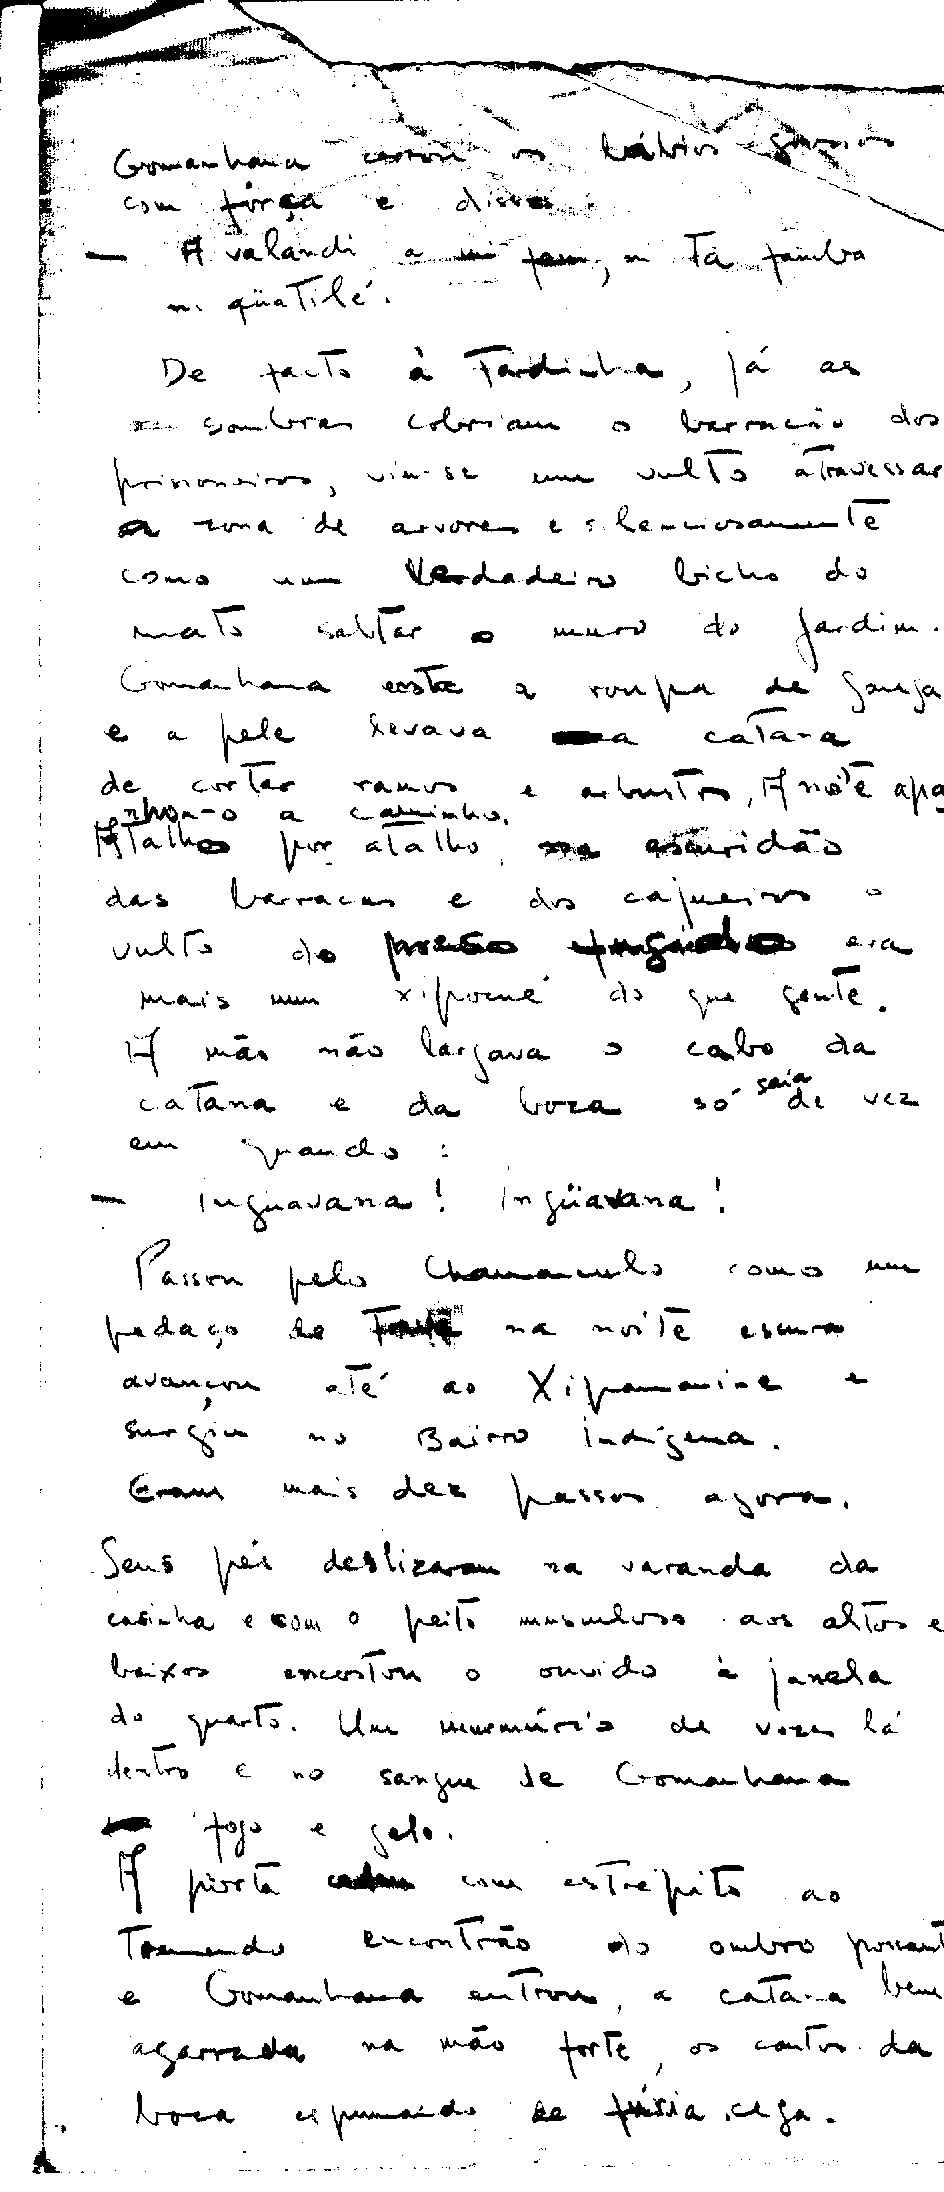 Gomanhana cerrou os lábios grossos
com fôrça e disse:
— A valandi a mi fam, ni ta famba
ni qüatilé.
De facto à Tardinha, já as
sombras cobriam o barracão dos
prisioneiros, viu-se um vulto atravessar
a zona de arvores e silenciosamente
como um verdadeiro bicho do
mato saltar o muro do jardim.
Gomanhana entre a roupa de ganga
e a pele levava a catana
de cortar ramos e arbustos. A noite apa-
nhou-o a caminho.
Atalho por atalho, na escuridão
das barracas e dos cajueiros o
vulto do preso fugido era
mais um xipocué do que gente.
A mão não largava o cabo da
catana e da boca só saia de vez
em quando:
— Inguavana! Ingüavana!
Passou pelo Chamanculo como um
pedaço de na noite escura
avançou até ao Xipamanine e
surgiu no Bairro Indígena.
Eram mais dez passos agora.
Seus pés deslizaram na varanda da
casinha e com o peito musculoso aos altos e
baixos encostou o ouvido à janela
do quarto. Um murmúrio de vozes lá
dentro e no sangue de Gomanhana
fogo e gelo.
A porta cedeu com estrépito ao
tremendo encontrão do ombro possant
e Gomanhana entrou, a catana bem
agarrada na mão forte, os cantos da
boca espumando de fúria cega.